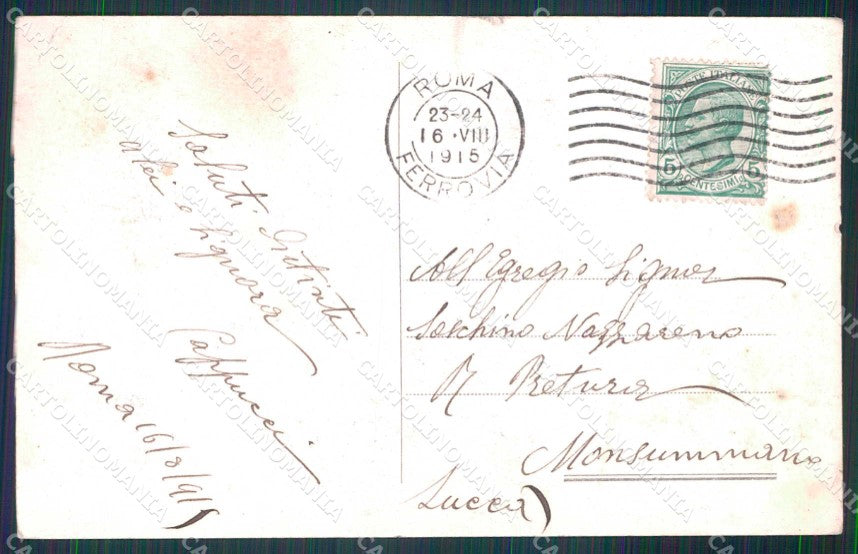 Saluti distinti
a lei e Signora
Cappucci
Roma 16/8/915
ROMA
23-24
16·VIII
1915
FERROVIA
POSTE ITALIANE
5 CENTESIMI 5
All'Egregio Signor
Nazzareno
R Pretura
Monsummano
Lucca)
CARTOLINOMANIA